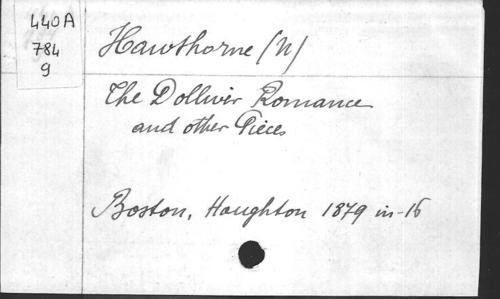 440A
784
9
Hawthorne (N)
The Dolliver Romance
and other Pieces
Boston, Houghton 1879 in-16